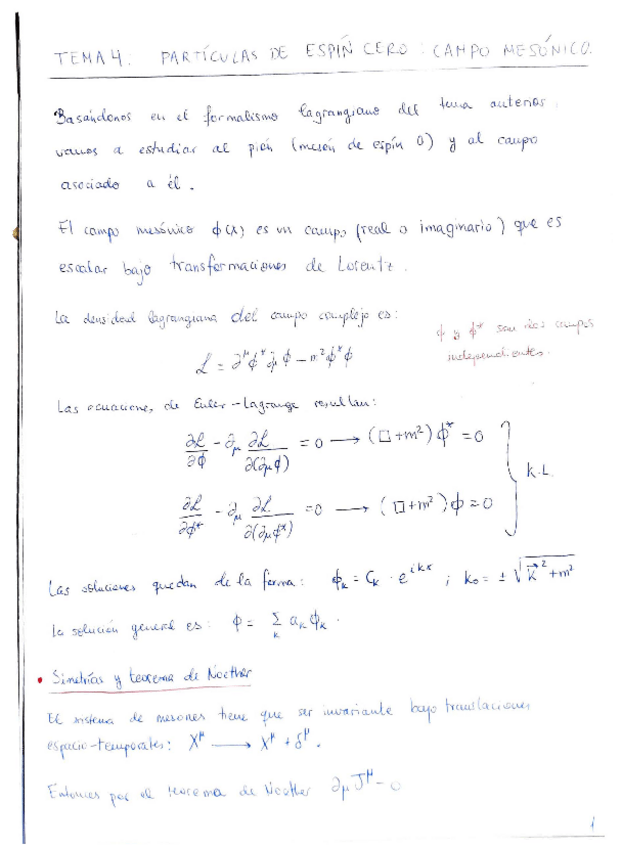 TEMA 4: PARTÍCULAS DE ESPÍN CERO: CAMPO MESÓNICO.
Basándonos en el formalismo lagrangiano del tema anterior,
vamos a estudiar al pión (mesón de espín 0) y al campo
asociado a él.
El campo mesónico ϕ(x) es un campo (real o imaginario) que es
escalar bajo transformaciones de Lorentz.
La densidad lagrangiana del campo complejo es:
ϕ y ϕ* son campos
independientes.
ℒ = ∂^μ ϕ* ∂_μ ϕ − m² ϕ* ϕ
Las ecuaciones de Euler-Lagrange resultan:
∂ℒ/∂ϕ − ∂_μ ∂ℒ/∂(∂_μ ϕ) = 0 ⟶ (□ + m²) ϕ* = 0
K.L.
∂ℒ/∂ϕ* − ∂_μ ∂ℒ/∂(∂_μ ϕ*) = 0 ⟶ (□ + m²) ϕ = 0
Las soluciones quedan de la forma: ϕ_k = C_k · e^{ikx} ; k₀ = ± √(k⃗² + m²)
La solución general es: ϕ = Σ_k a_k ϕ_k.
• Simetrías y teorema de Noether
El sistema de mesones tiene que ser invariante bajo translaciones
espacio-temporales: X^μ ⟶ X^μ + δ^μ.
Entonces por el teorema de Noether ∂_μ J^μ = 0
1